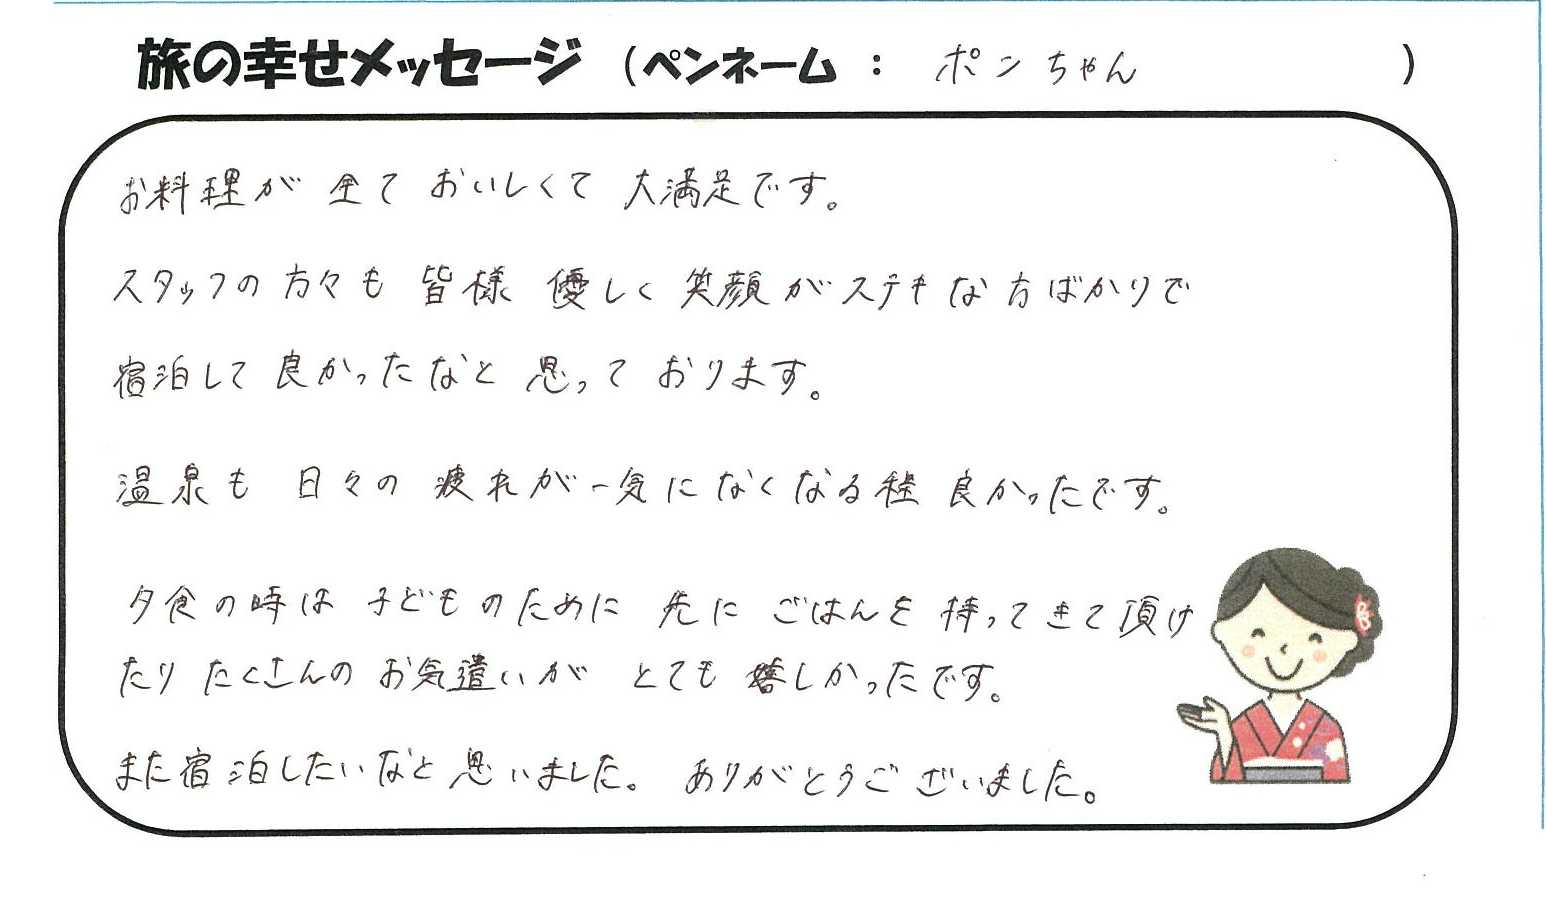 旅の幸せメッセージ (ペンネーム : ポンちゃん )
お料理が 全て おいしくて 大満足です。
スタッフの 方々も 皆様 優しく 笑顔が ステキな方ばかりで
宿泊して 良かったなと 思って おります。
温泉も 日々の 疲れが一気に なくなる程 良かったです。
夕食の時は 子どものために 先に ごはんを 持ってきて頂け
たり たくさんの お気遣いが とても 嬉しかったです。
また宿泊したいなと 思いました。 ありがとうございました。